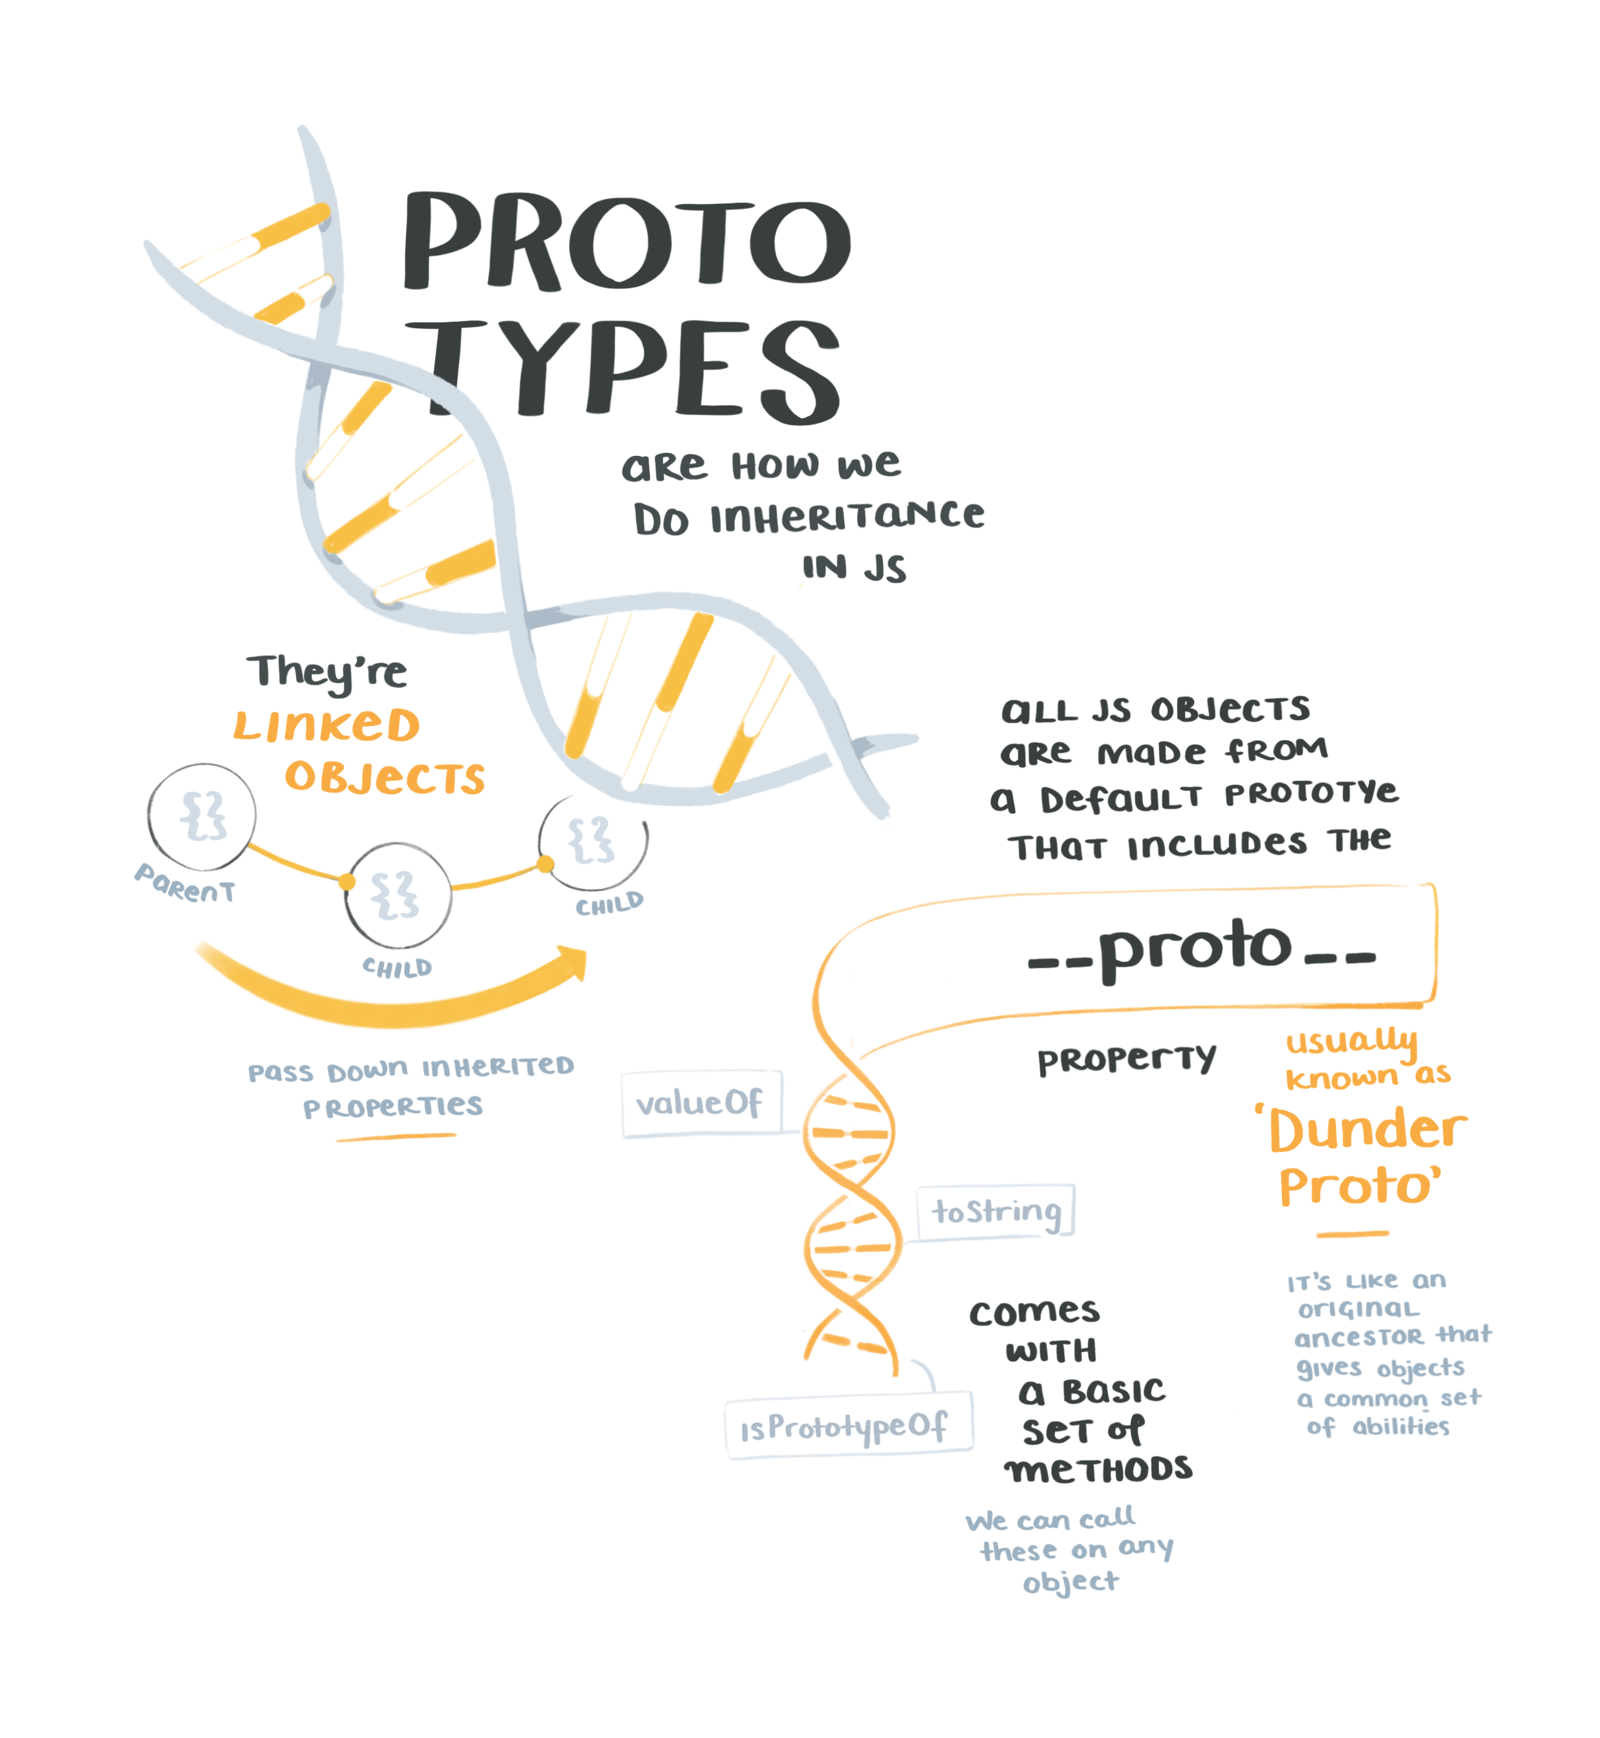 PROTO
TYPES
are How we
Do InHeRITaNCe
IN JS
They're
LINKeD
OBJeCTS
{}
PareNT
{}
CHILD
{}
CHILD
Pass Down InHeRITeD
PROPeRTIeS
aLL JS OBJeCTS
are made fROM
a Default PROTOTYe
THaT INCLuDes THe
__proto__
PROPeRTY
usually
known as
'Dunder
Proto'
IT'S LIKe an
ORIGINaL
anceSTOR that
gives objects
a common set
of abilities
valueOf
toString
isPrototypeOf
comes
WITH
a BaSIC
SeT of
meTHODS
We can call
these on any
object